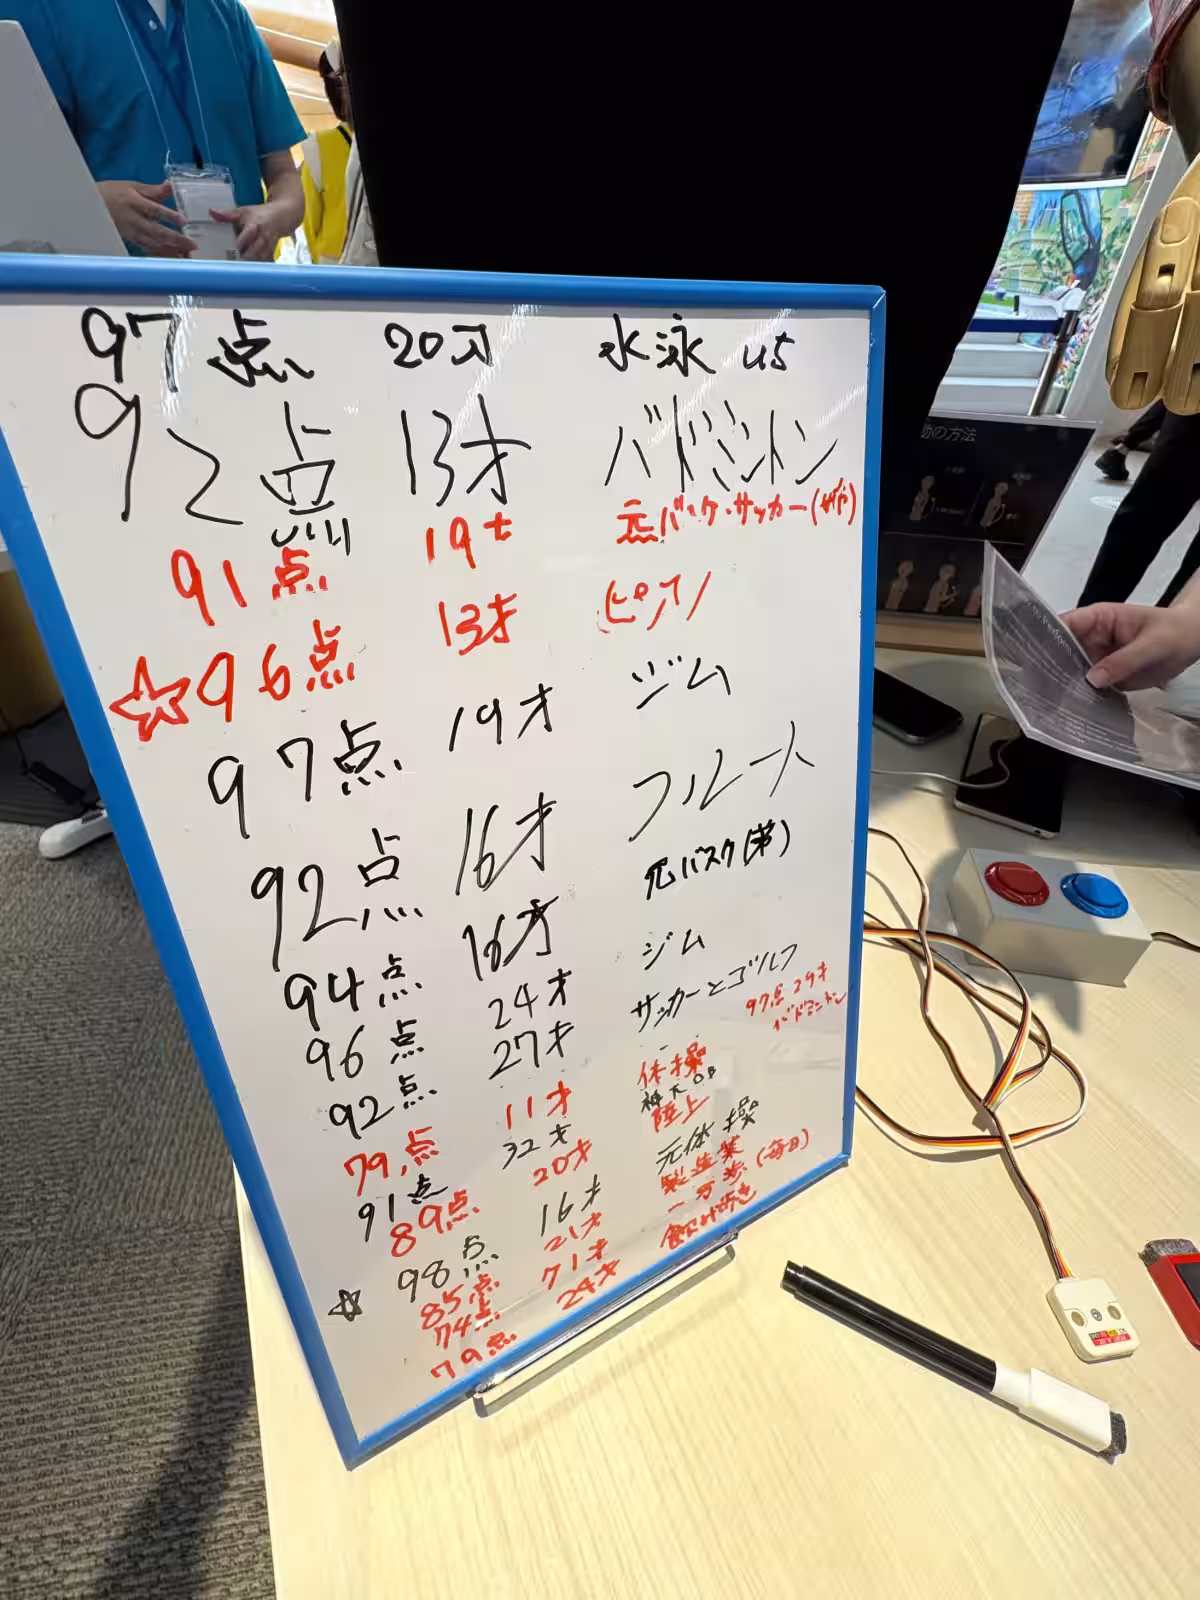 97点 20才 水泳 US
92点 13才 バドミントン
91点 19才 元バスケ・サッカー
☆96点 13才 ピアノ
97点 19才 ジム
92点 16才 フルート
94点 16才 元バスク
96点 24才 ジム
92点 27才 サッカーとゴルフ
97点 29才
バドミントン
79点 11才 体操
91点 32才 神大OB
89点 20才 陸上
☆98点 16才 元体操
85点 21才 製造業
74点 71才 一万歩(毎日)
79点 24才 飲み歩き
動の方法